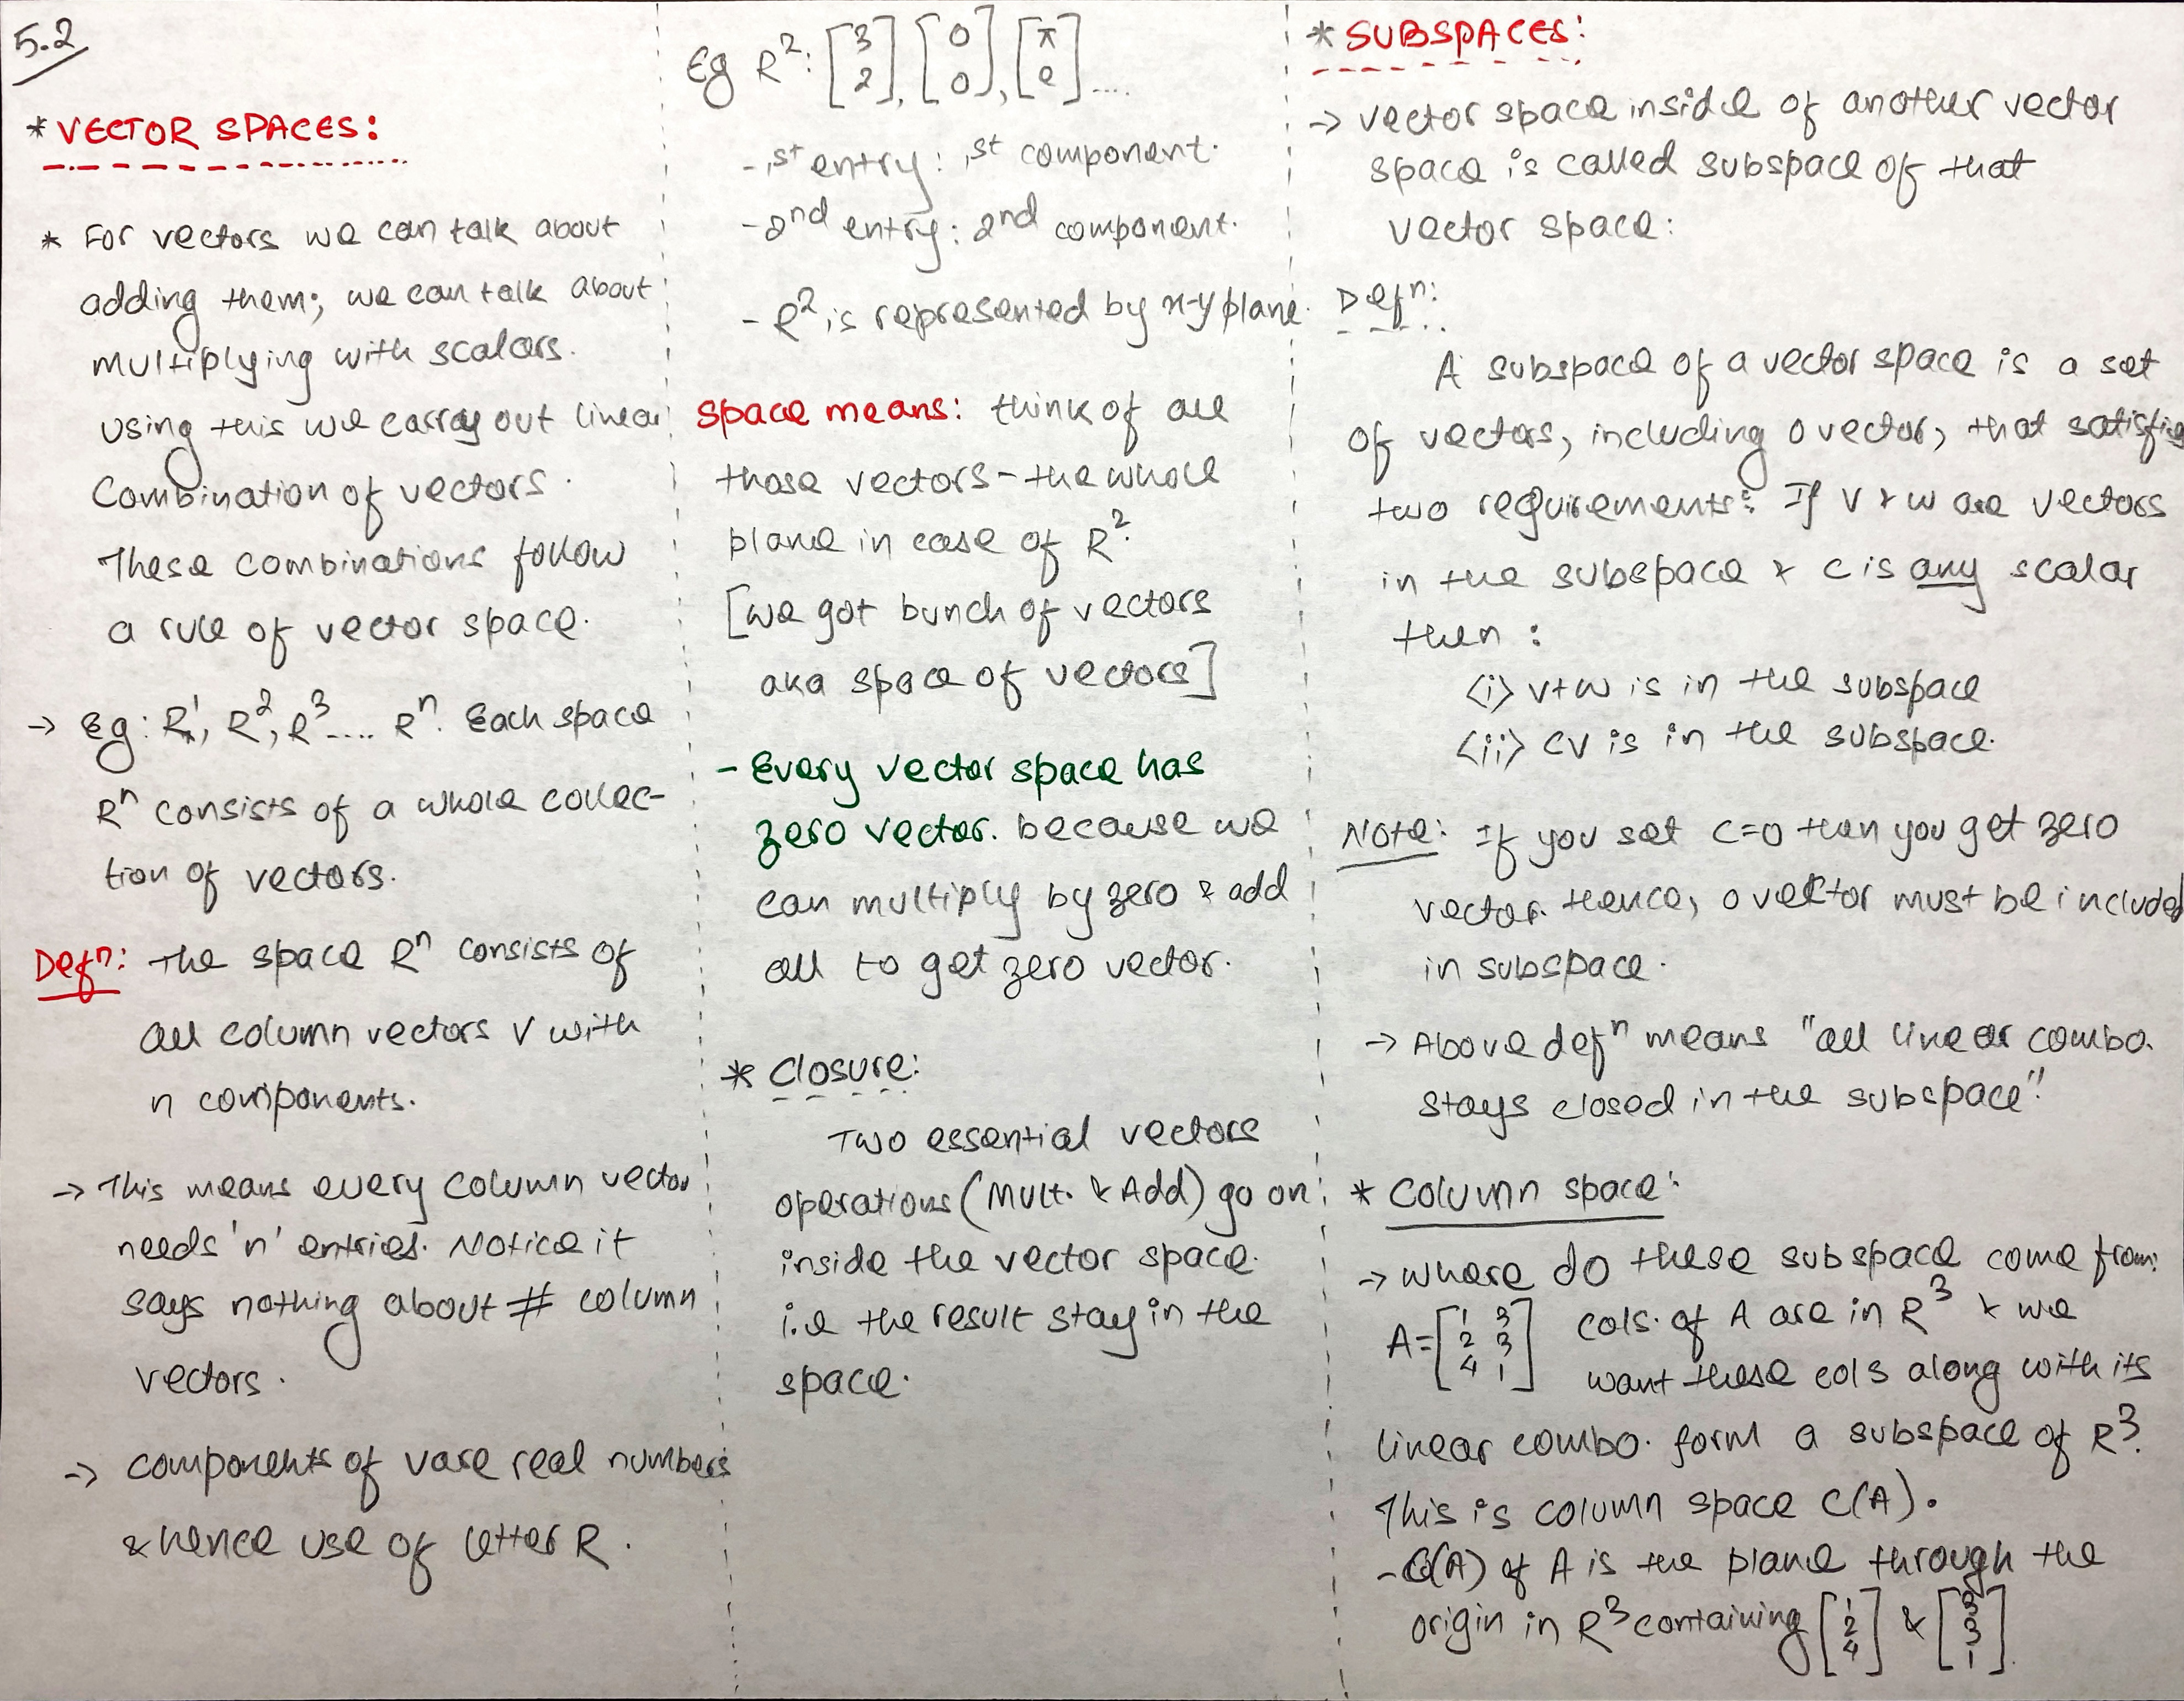 5.2
* VECTOR SPACES:
* For vectors we can talk about
adding them; we can talk about
multiplying with scalars.
using this we carry out linear
Combination of vectors.
These combinations follow
a rule of vector space.
→ Eg: R¹, R², R³.... Rⁿ. Each space
Rⁿ consists of a whole collec-
tion of vectors.
Defⁿ: The space Rⁿ consists of
all column vectors v with
n components.
→ This means every column vector
needs 'n' entries. Notice it
says nothing about # column
vectors.
→ components of v are real numbers
& hence use of letter R.
Eg R²: [3 2], [0 0], [π e]....
- 1st entry: 1st component.
- 2nd entry: 2nd component.
- R² is represented by x-y plane.
space means: think of all
those vectors - the whole
plane in case of R².
[we got bunch of vectors
aka space of vectors]
- Every vector space has
zero vector. because we
can multiply by zero & add
all to get zero vector.
* Closure:
Two essential vectors
operations (Mult. & Add) go on
inside the vector space.
i.e the result stay in the
space.
* SUBSPACES:
→ vector space inside of another vector
space is called subspace of that
vector space:
Defⁿ:
A subspace of a vector space is a set
of vectors, including 0 vector, that satisfies
two requirements: If v & w are vectors
in the subspace & c is any scalar
then:
<i> v+w is in the subspace
<ii> cv is in the subspace.
Note: If you set c=0 then you get zero
vector. Hence, 0 vector must be included
in subspace.
→ Above defⁿ means "all linear combo.
stays closed in the subspace".
* Column space:
→ where do these subspace come from:
A = [1 3
2 3
4 1] cols. of A are in R³ & we
want these cols along with its
linear combo. form a subspace of R³.
This is column space C(A).
- C(A) of A is the plane through the
origin in R³ containing [1 2 4] & [3 3 1].